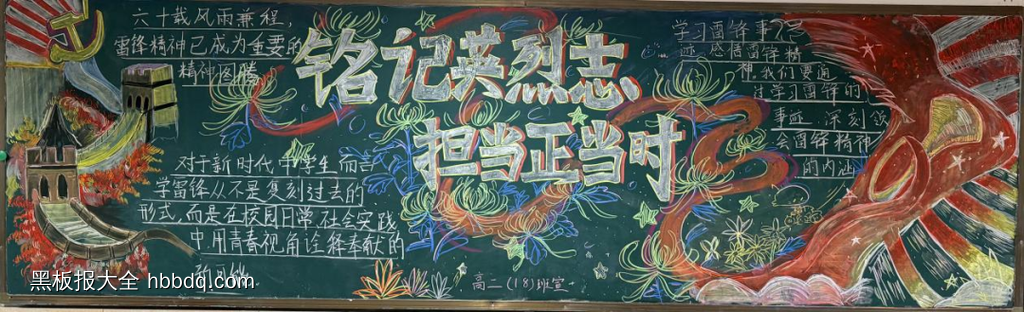 六十载风雨兼程，
雷锋精神已成为重要的
精神图腾
对于新时代中学生而言
学雷锋从不是复刻过去的
形式，而是在校园日常、社会实践
中用青春视角诠释奉献的
铭记英烈志
担当正当时
学习雷锋事
迹，感悟雷锋精
神，我们要通
过学习雷锋的
事迹，深刻领
会雷锋精神
的内涵
高二(18)班宣
黑板报大全 hbbdq.com